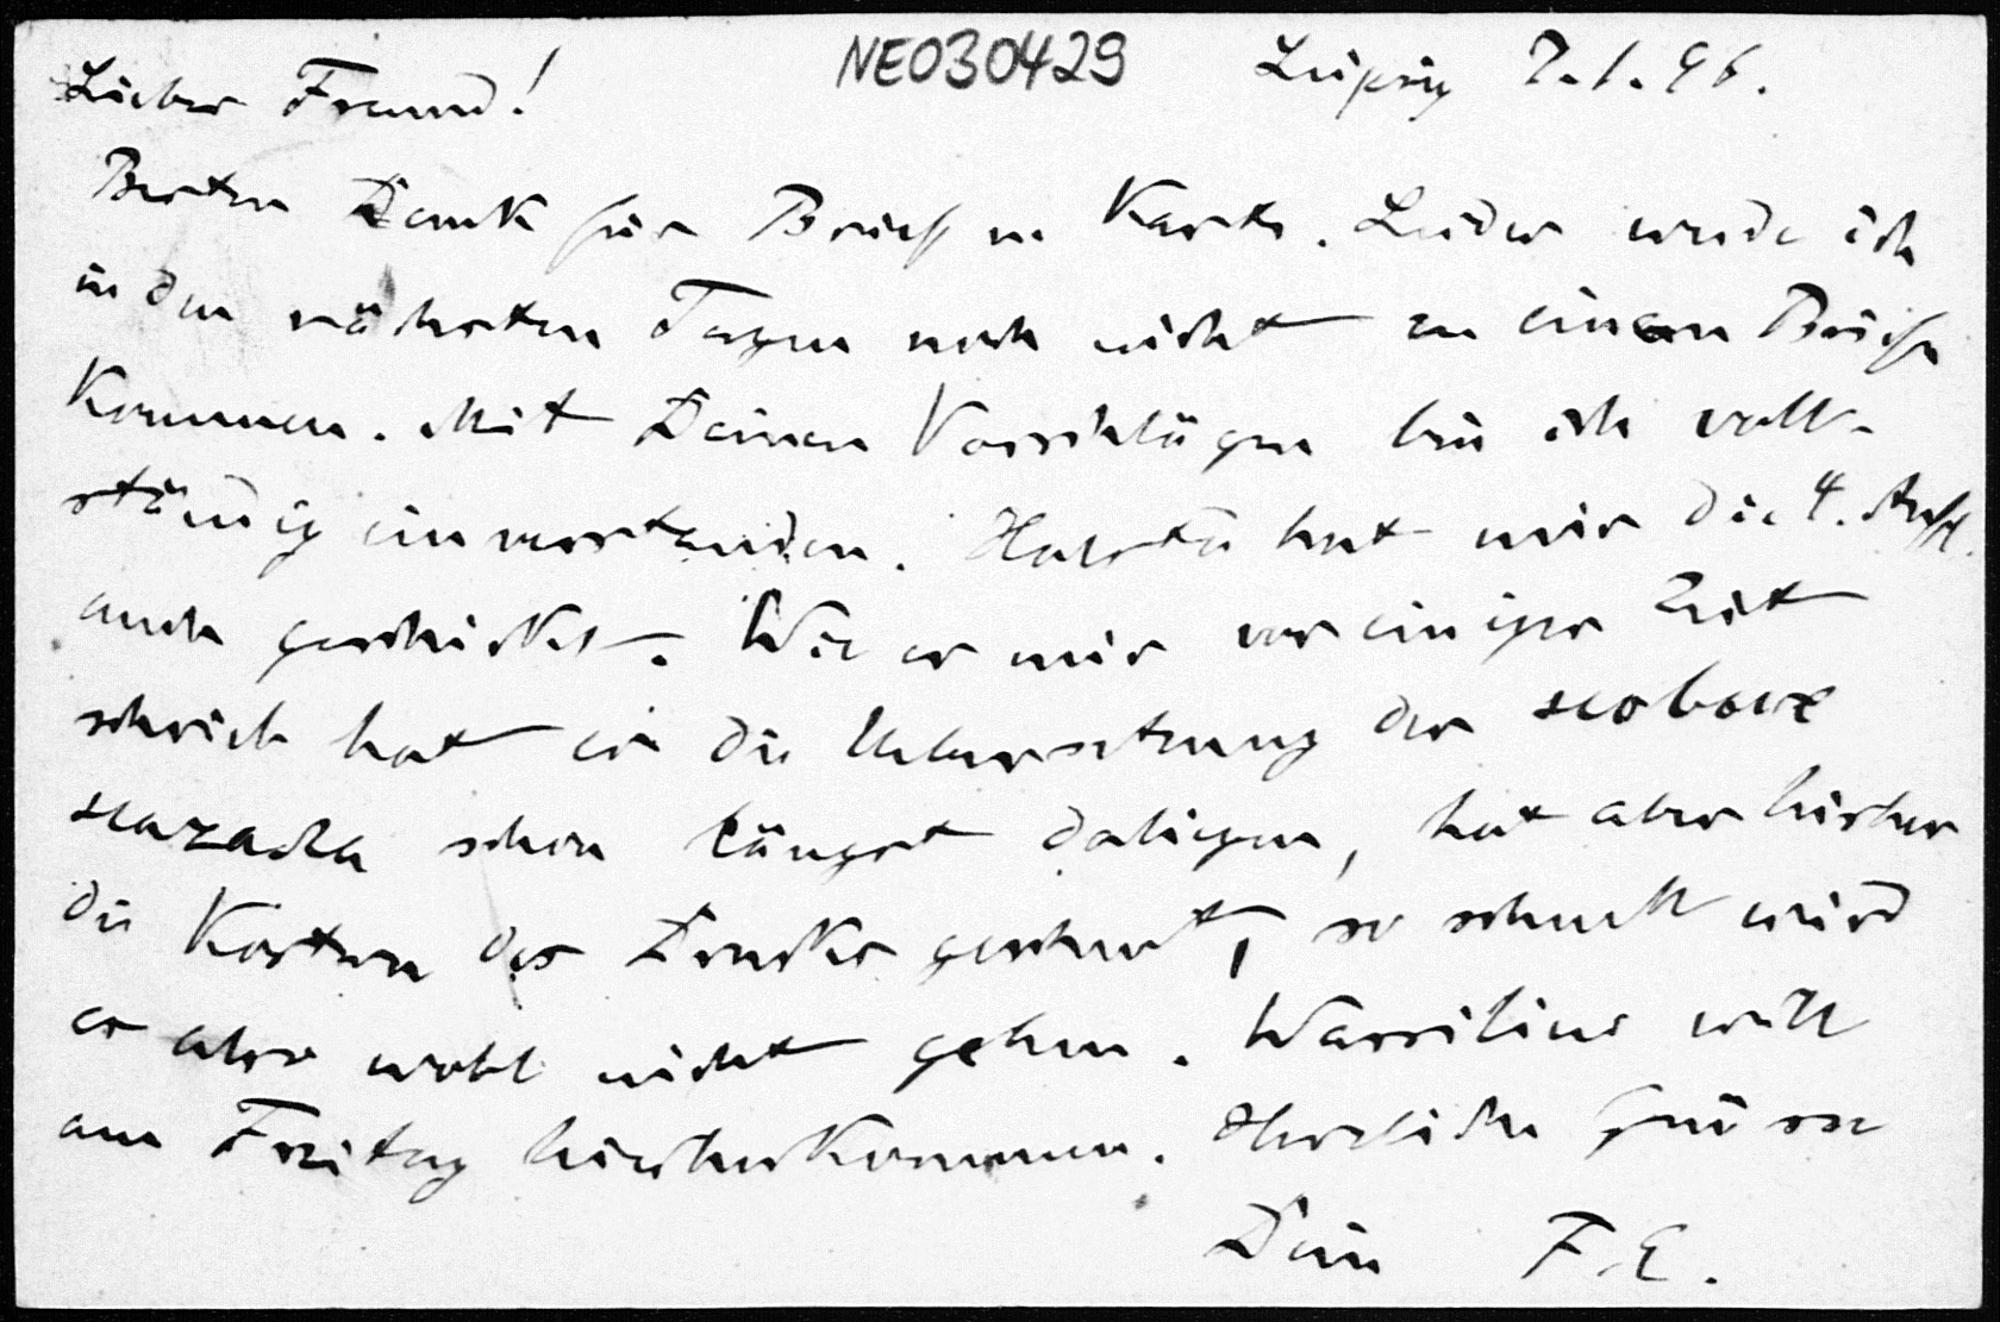 NE030429
Leipzig 7.1.96.
Lieber Freund!
Besten Dank für Brief u. Karte. Leider werde ich
in den nächsten Tagen noch nicht zu einem Briefe
kommen. Mit Deinen Vorschlägen bin ich voll-
ständig einverstanden. hat mir die 4. Aufl.
auch geschickt. Wie er mir vor einiger Zeit
schrieb hat er die Uebersetzung der
schon längst daliegen, hat aber bisher
die Kosten des Druckes gescheut, so schnell wird
es also wohl nicht gehen. Wassilius will
am Freitag hierherkommen. Herzliche Grüsse
Dein F. E.